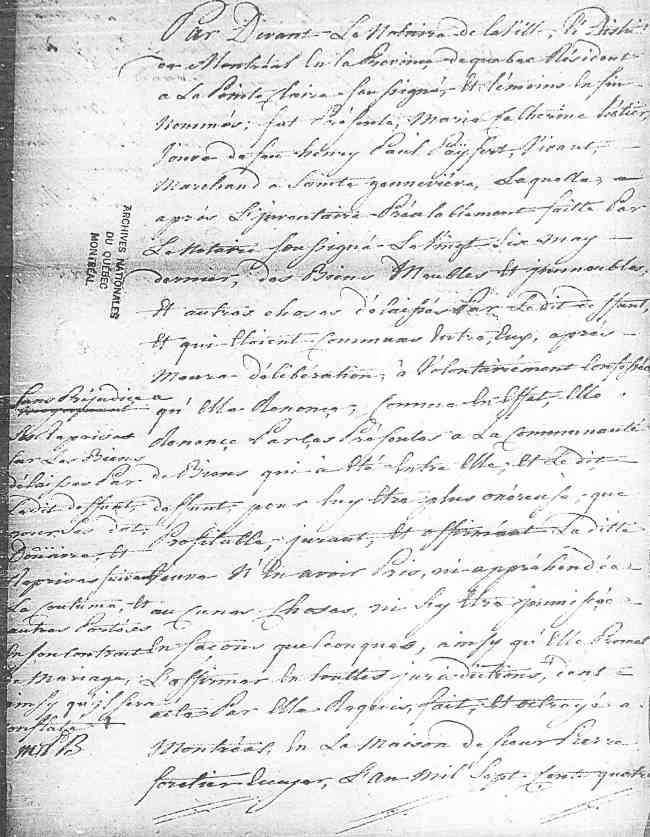 Par Devant Le Notaire de la Ville, & District
de Montréal En la Province de quebec Résident
a La Pointe Claire Soussigné, Et témoins En fin
Nommés; fut Présente, Marie Catherine
Veuve de feu henry Paul Vivant,
Marchand a Sainte genneviéve, Laquelle, a
aprés L'jnventaire Préalablement faitte Par
Le Notaire Soussigné Le Vingt Six may
dernier, des Biens Meubles Et jmmeubles,
Et autres choses délaissés Par Le dit deffunt,
Et qui Etoient Communs Entre Eux, aprés
Meure déliberation, à Volontairement Confessée
qu'Elle Renonce, Comme En Effet, Elle
Renonce Par Ces Présentes a La Communauté
de Biens qui à Eté Entre Elle, Et Le dit
deffunt, pour luy Etre plus onéreuse, que
Profitable, jurant, Et affirmant La ditte
Veuve N'En avoir Pris, ni appréhendée
aucunes Choses, ni S'y Etre jmmissée
En facons quelconques, ainsy qu'Elle Promet
L'affirmer En touttes juradictions, dont
acte Par Elle Requis, fait, Et octroyé a
Montréal, En La Maison de Sieur Pierre
foretier Ecuyer, L'an Mil Sept Cent quatre
Sans Préjudice a
Ses Reprises
Sur Les Biens
délaissés Par
Le dit deffunt,
pour Ses dot,
Doüaire, Et
Reprises Suivant
La Coutume, Et
autres Portées
En Son Contrat
de Mariage,
ainsy qu'il Sera
Constaté
ARCHIVES NATIONALES
DU QUÉBEC
MONTRÉAL